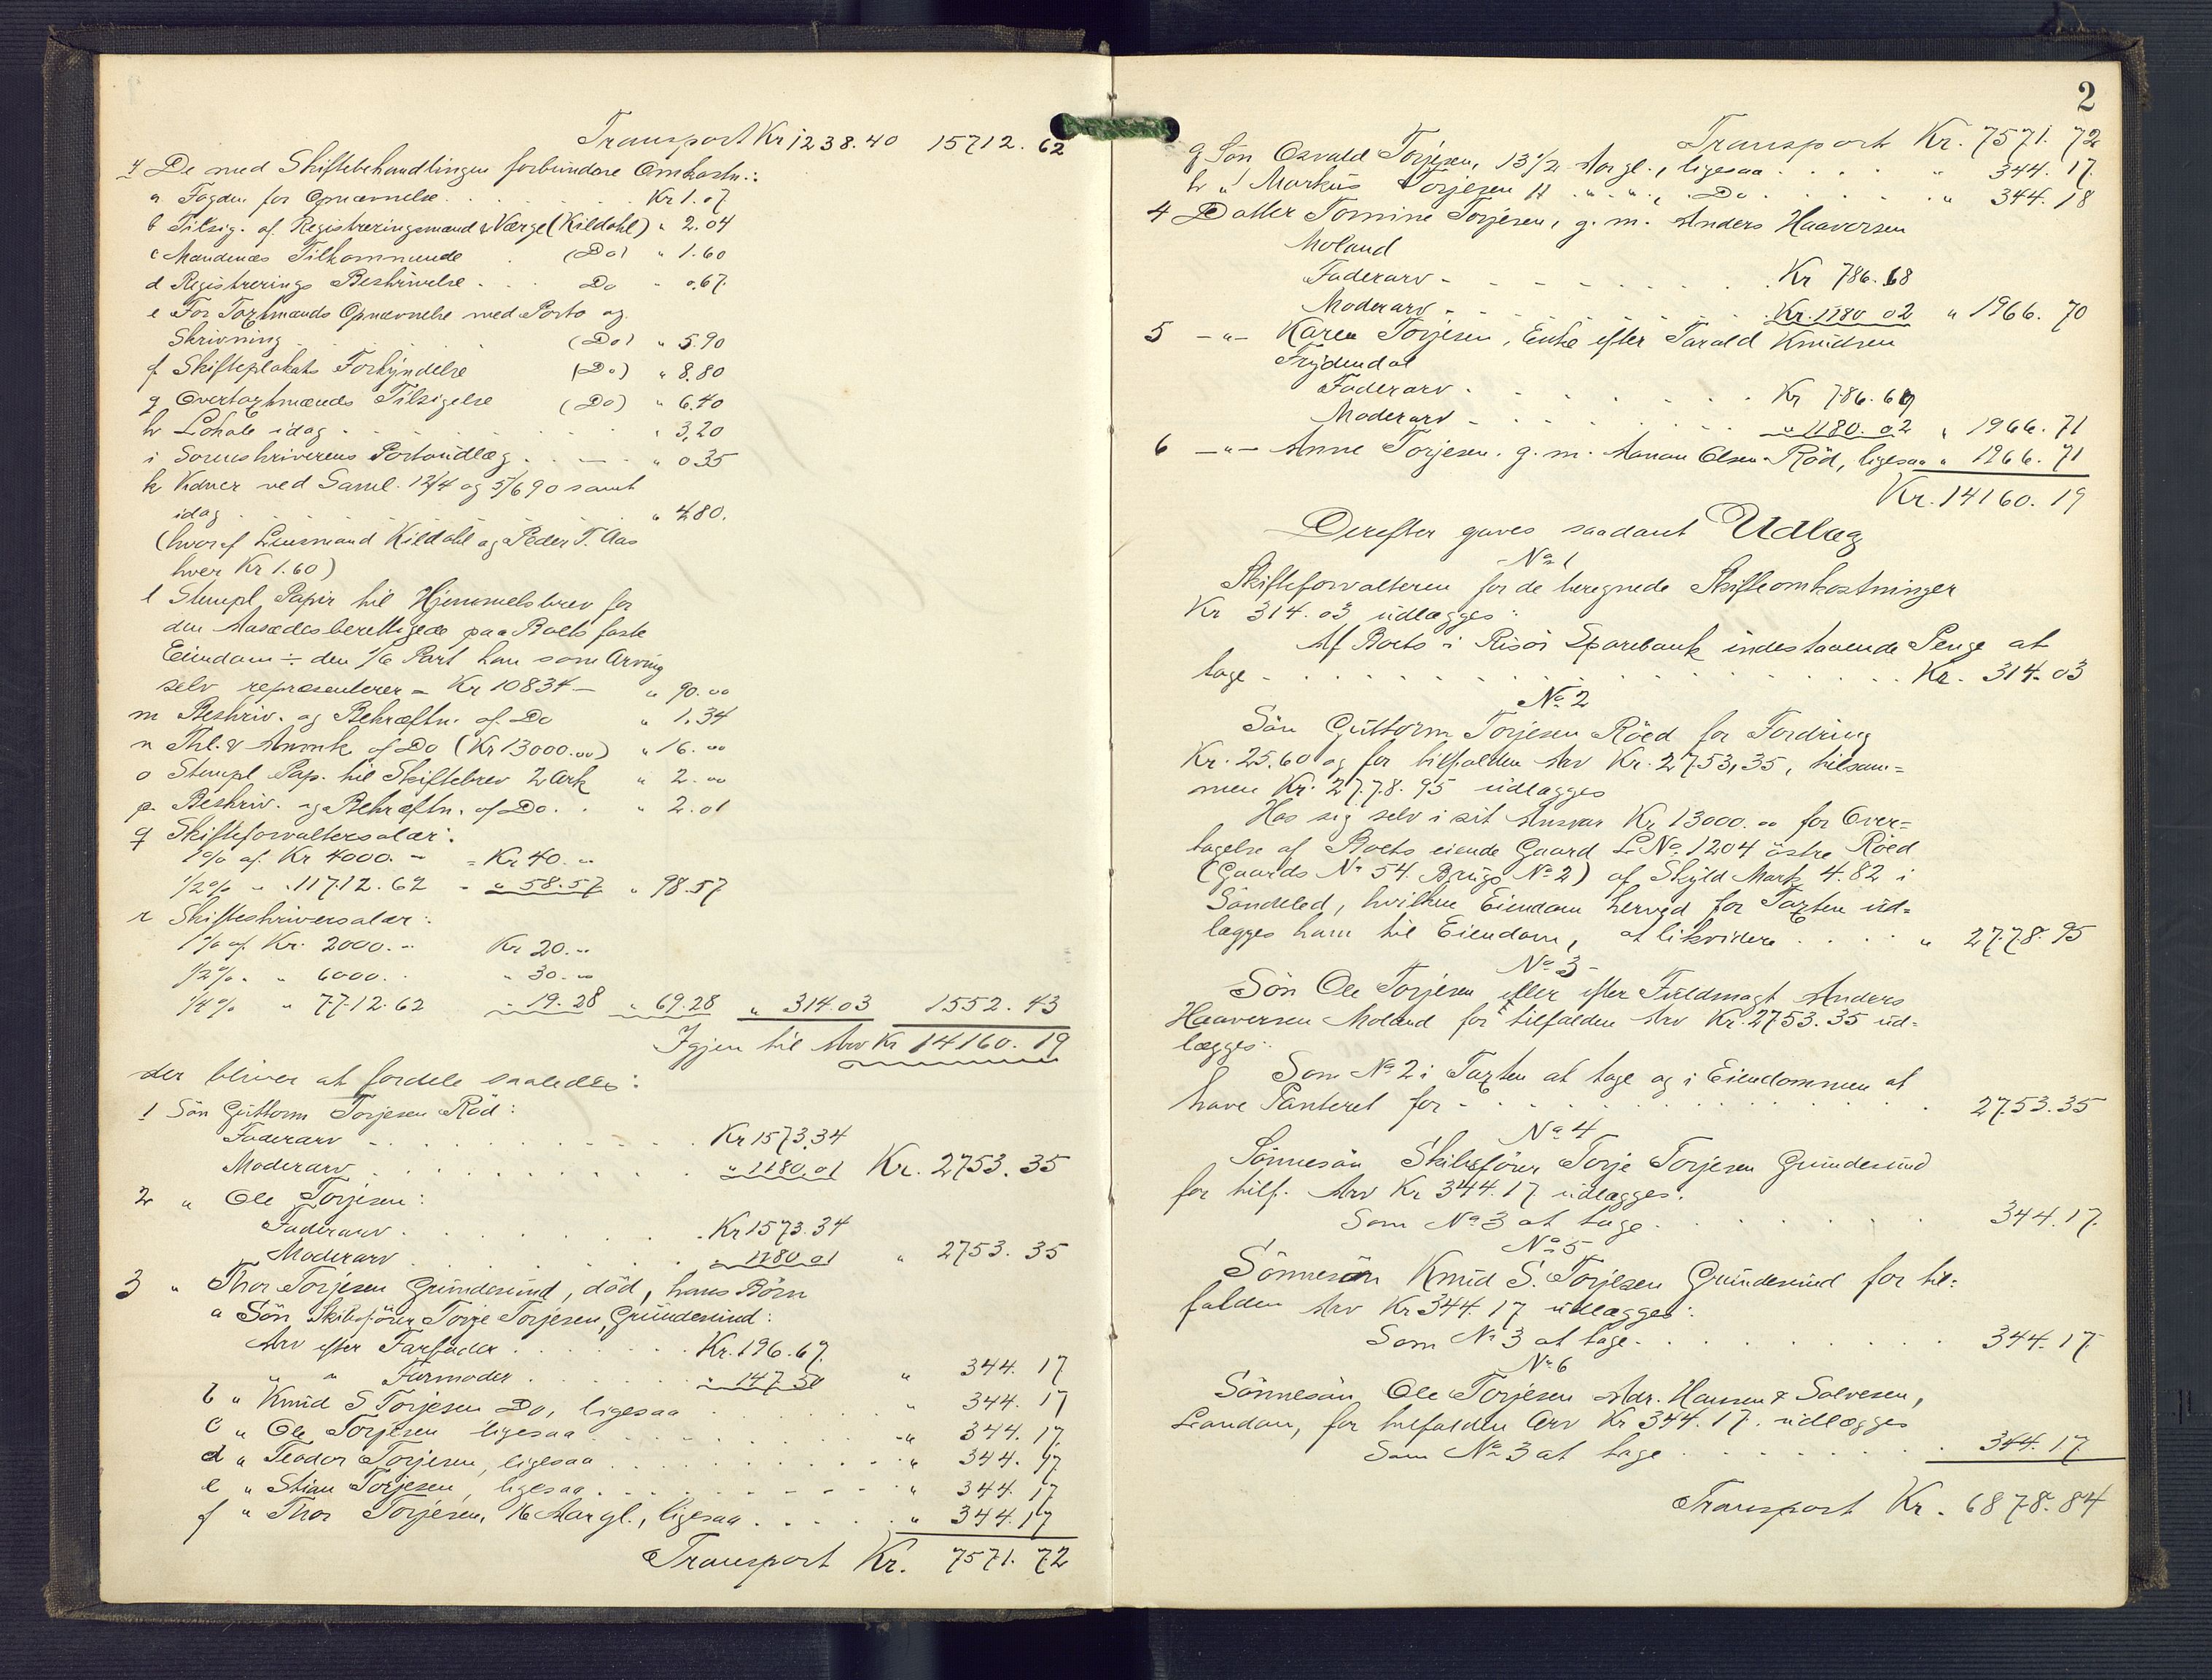 Transport Kr 1238.40 15712.62
4 De med Skiftebehandlingen forbundne Omkostn.:
a Fogden for Opnævnelse . . . Kr 1.07
b Tilsig. af Registreringsmænd & Værge (Kildahl) " 2.04
c Mændenes Tilkommende . (Do) " 1.60
d Registrerings Beskrivelse . . . Do " 0.67
e For Taxtmænds Opnævnelse med Porto og
Skrivning (Do) " 5.90
f Skifteplakats Forkyndelse (Do) " 8.80
g Overtaxtmænds Tilsigelse (Do) " 6.40
h Lokale idag . . . " 3,20
i Sorenskriverens Portoudlæg . . . " 0.35
k Vidner ved Saml. 12/4 og 5/6 90 samt
idag . . . " 4.80.
(hvoraf Lensmand Kildahl og Peder T. Aas
hver Kr 1.60)
l Stempl. Papir til Hjemmelsbrev for
den Aasædesberettigede paa Boets faste
Eiendom ÷ den 1/6 Part han som Arving
selv repræsenterer = Kr 10834 — " 90.00
m Beskriv. og Bekræftn. af Do " 1.34
n Thl. & Anmk af Do (Kr 13000.00) " 16.00
o Stempl. Pap. til Skiftebrev 2 Ark " 2.00
p Beskriv. og Bekræftn. af Do. . " 2.01
q Skifteforvaltersalær:
1% af Kr 4000. - = Kr 40. -
1/2% " " 11712.62 - " 58.57 " 98.57
r Skifteskriversalær:
1% af Kr. 2000. - Kr 20. -
1/2% . " 6000. . " 30. -
1/4% " 7712.62 " 19.28 " 69.28 " 314.03 1552.43
Igjen til Arv Kr 14160.19
der bliver at fordele saaledes:
1 Søn Guttorm Torjesen Röd:
Faderarv . . . Kr 1573.34
Moderarv . . . " 1180.01 Kr. 2753.35
2 " Ole Torjesen:
Faderarv . . . Kr 1573.34
Moderarv . . . " 1180.01 " 2753.35
3 " Thor Torjesen Grundesund, död, hans Börn
a Søn Skibsförer Torje Torjesen, Grundesund:
Arv efter Farfader . . . Kr. 196.67.
" " Farmoder . . . " 147.50 " 344.17
b " Knud S Torjesen Do, ligesaa . . . " 344.17
c " Ole Torjesen ligesaa . . . " 344.17.
d " Teodor Torjesen, ligesaa . . . " 344.17
e " Stian Torjesen, ligesaa . . . " 344.17
f " Thor Torjesen, 16 Aar gl., ligesaa . . . " 344.17
Transport Kr. 7571.72
2
Transport Kr. 7571.72
g Søn Osvald Torjesen, 13 1/2 Aar gl., ligesaa . . . " 344.17.
h " Markus Torjesen 11 " " , Do . . . " 344.18
4 Datter Tomine Torjesen, g. m. Anders Haaversen
Moland
Faderarv . . . Kr 786.68
Moderarv . . . Kr. 1180 02 " 1966.70
5 —"— Karen Torjesen, Enke efter Tarald Knudsen
Frydendal
Faderarv . . . Kr 786.69
Moderarv . . . " 1180.02 " 1966.71
6 —"— Anne Torjesen. g. m. Aanon Olsen Röd, ligesaa " 1966.71
Kr. 14160.19
Derefter gaves saadant Udlæg
No 1
Skifteforvalteren for de beregnede Skifteomkostninger
Kr 314.03 udlægges:
Af Boets i Risör Sparebank indestaaende Penge at
tage . . . Kr. 314.03
No 2
Søn Guttorm Torjesen Röed for Fordring
Kr. 25.60 og for tilfalden Arv Kr. 2753,35, tilsam=
men Kr. 2778.95 udlægges
Hos sig selv i sit Ansvar Kr 13000.00 for Over=
tagelse af Boets eiende Gaard L No 1204 östre Röed
(Gaards No 54 Brugs No 2) af Skyld Mark 4.82 i
Söndeled, hvilken Eiendom herved for Taxten ud=
lægges ham til Eiendom, at likvidere . . . " 2778.95
No 3
Søn Ole Torjesen eller efter Fuldmagt Anders
Haaversen Moland for tilfalden Arv Kr. 2753.35 ud=
lægges:
Som No 2 i Taxten at tage og i Eiendommen at
have Panteret for . . . 2753.35
No 4
Sönnesön Skibsförer Torje Torjesen Grundesund
for tilf. Arv Kr 344.17 udlægges.
Som No 3 at tage . . . 344.17.
No 5
Sönnesön Knud S. Torjesen Grundesund for til=
falden Arv Kr 344.17 udlægges:
Som No 3 at tage . . . 344.17
No 6
Sönnesön Ole Torjesen Adr. Hansen & Salvesen,
London, for tilfalden Arv Kr 344.17. udlægges
Som No 3 at tage . . . 344.17
Transport Kr. 6878.84